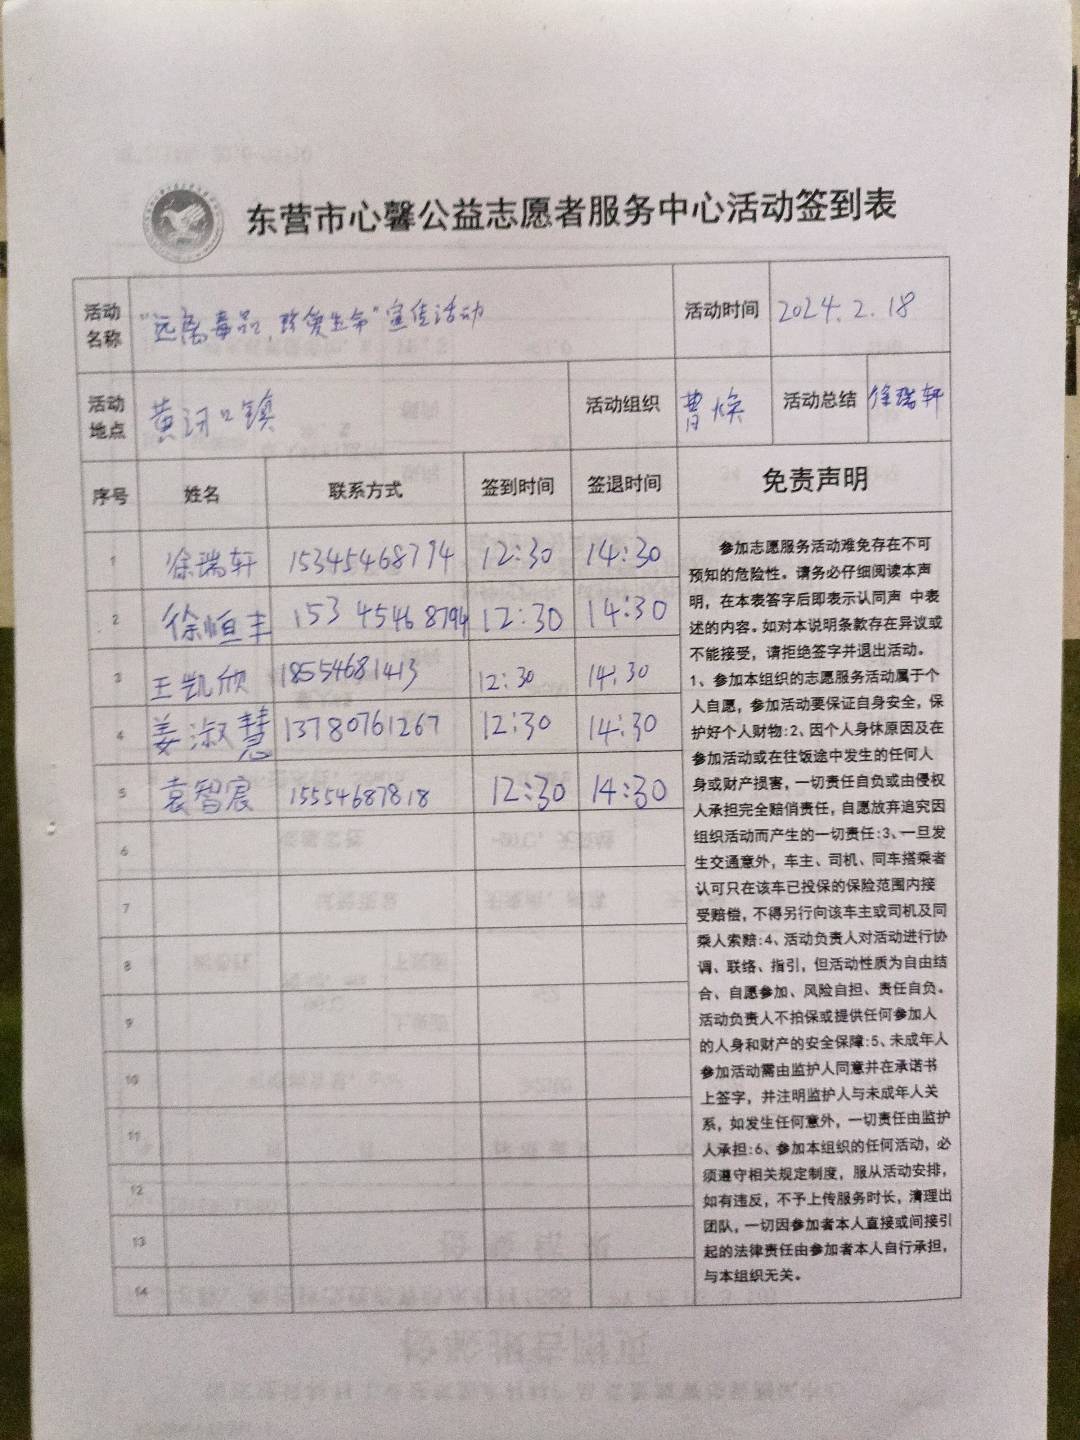 东营市心馨公益志愿者服务中心活动签到表
活动名称 "远离毒品，珍爱生命"宣传活动 活动时间 2024.2.18
活动地点 黄河口镇 活动组织 曹焕 活动总结 徐瑞轩
序号 姓名 联系方式 签到时间 签退时间 免责声明
1 徐瑞轩 15345468794 12:30 14:30
2 徐恒丰 15345468794 12:30 14:30
3 王凯欣 18554681413 12:30 14:30
4 姜淑慧 13780761267 12:30 14:30
5 袁智宸 15554687818 12:30 14:30
6
7
8
9
10
11
12
13
14
参加志愿服务活动难免存在不可
预知的危险性。请务必仔细阅读本声
明，在本表答字后即表示认同声 中表
述的内容。如对本说明条款存在异议或
不能接受，请拒绝签字并退出活动。
1、参加本组织的志愿服务活动属于个
人自愿，参加活动要保证自身安全，保
护好个人财物:2、因个人身休原因及在
参加活动或在往饭途中发生的任何人
身或财产损害，一切责任自负或由侵权
人承担完全赔俏责任，自愿放弃追究因
组织活动而产生的一切责任:3、一旦发
生交通意外，车主、司机、同车搭乘者
认可只在该车已投保的保险范围内接
受赔偿，不得另行向该车主或司机及同
乘人索赔:4、活动负责人对活动进行协
调、联络、指引，但活动性质为自由结
合、自愿参加、风险自担、责任自负。
活动负责人不拍保或提供任何参加人
的人身和财产的安全保障:5、未成年人
参加活动需由监护人同意并在承诺书
上签字，并注明监护人与未成年人关
系，如发生任何意外，一切责任由监护
人承担:6、参加本组织的任何活动，必
须遵守相关规定制度，服从活动安排，
如有违反，不予上传服务时长，清理出
团队，一切因参加者本人直接或间接引
起的法律责任由参加者本人自行承担，
与本组织无关。